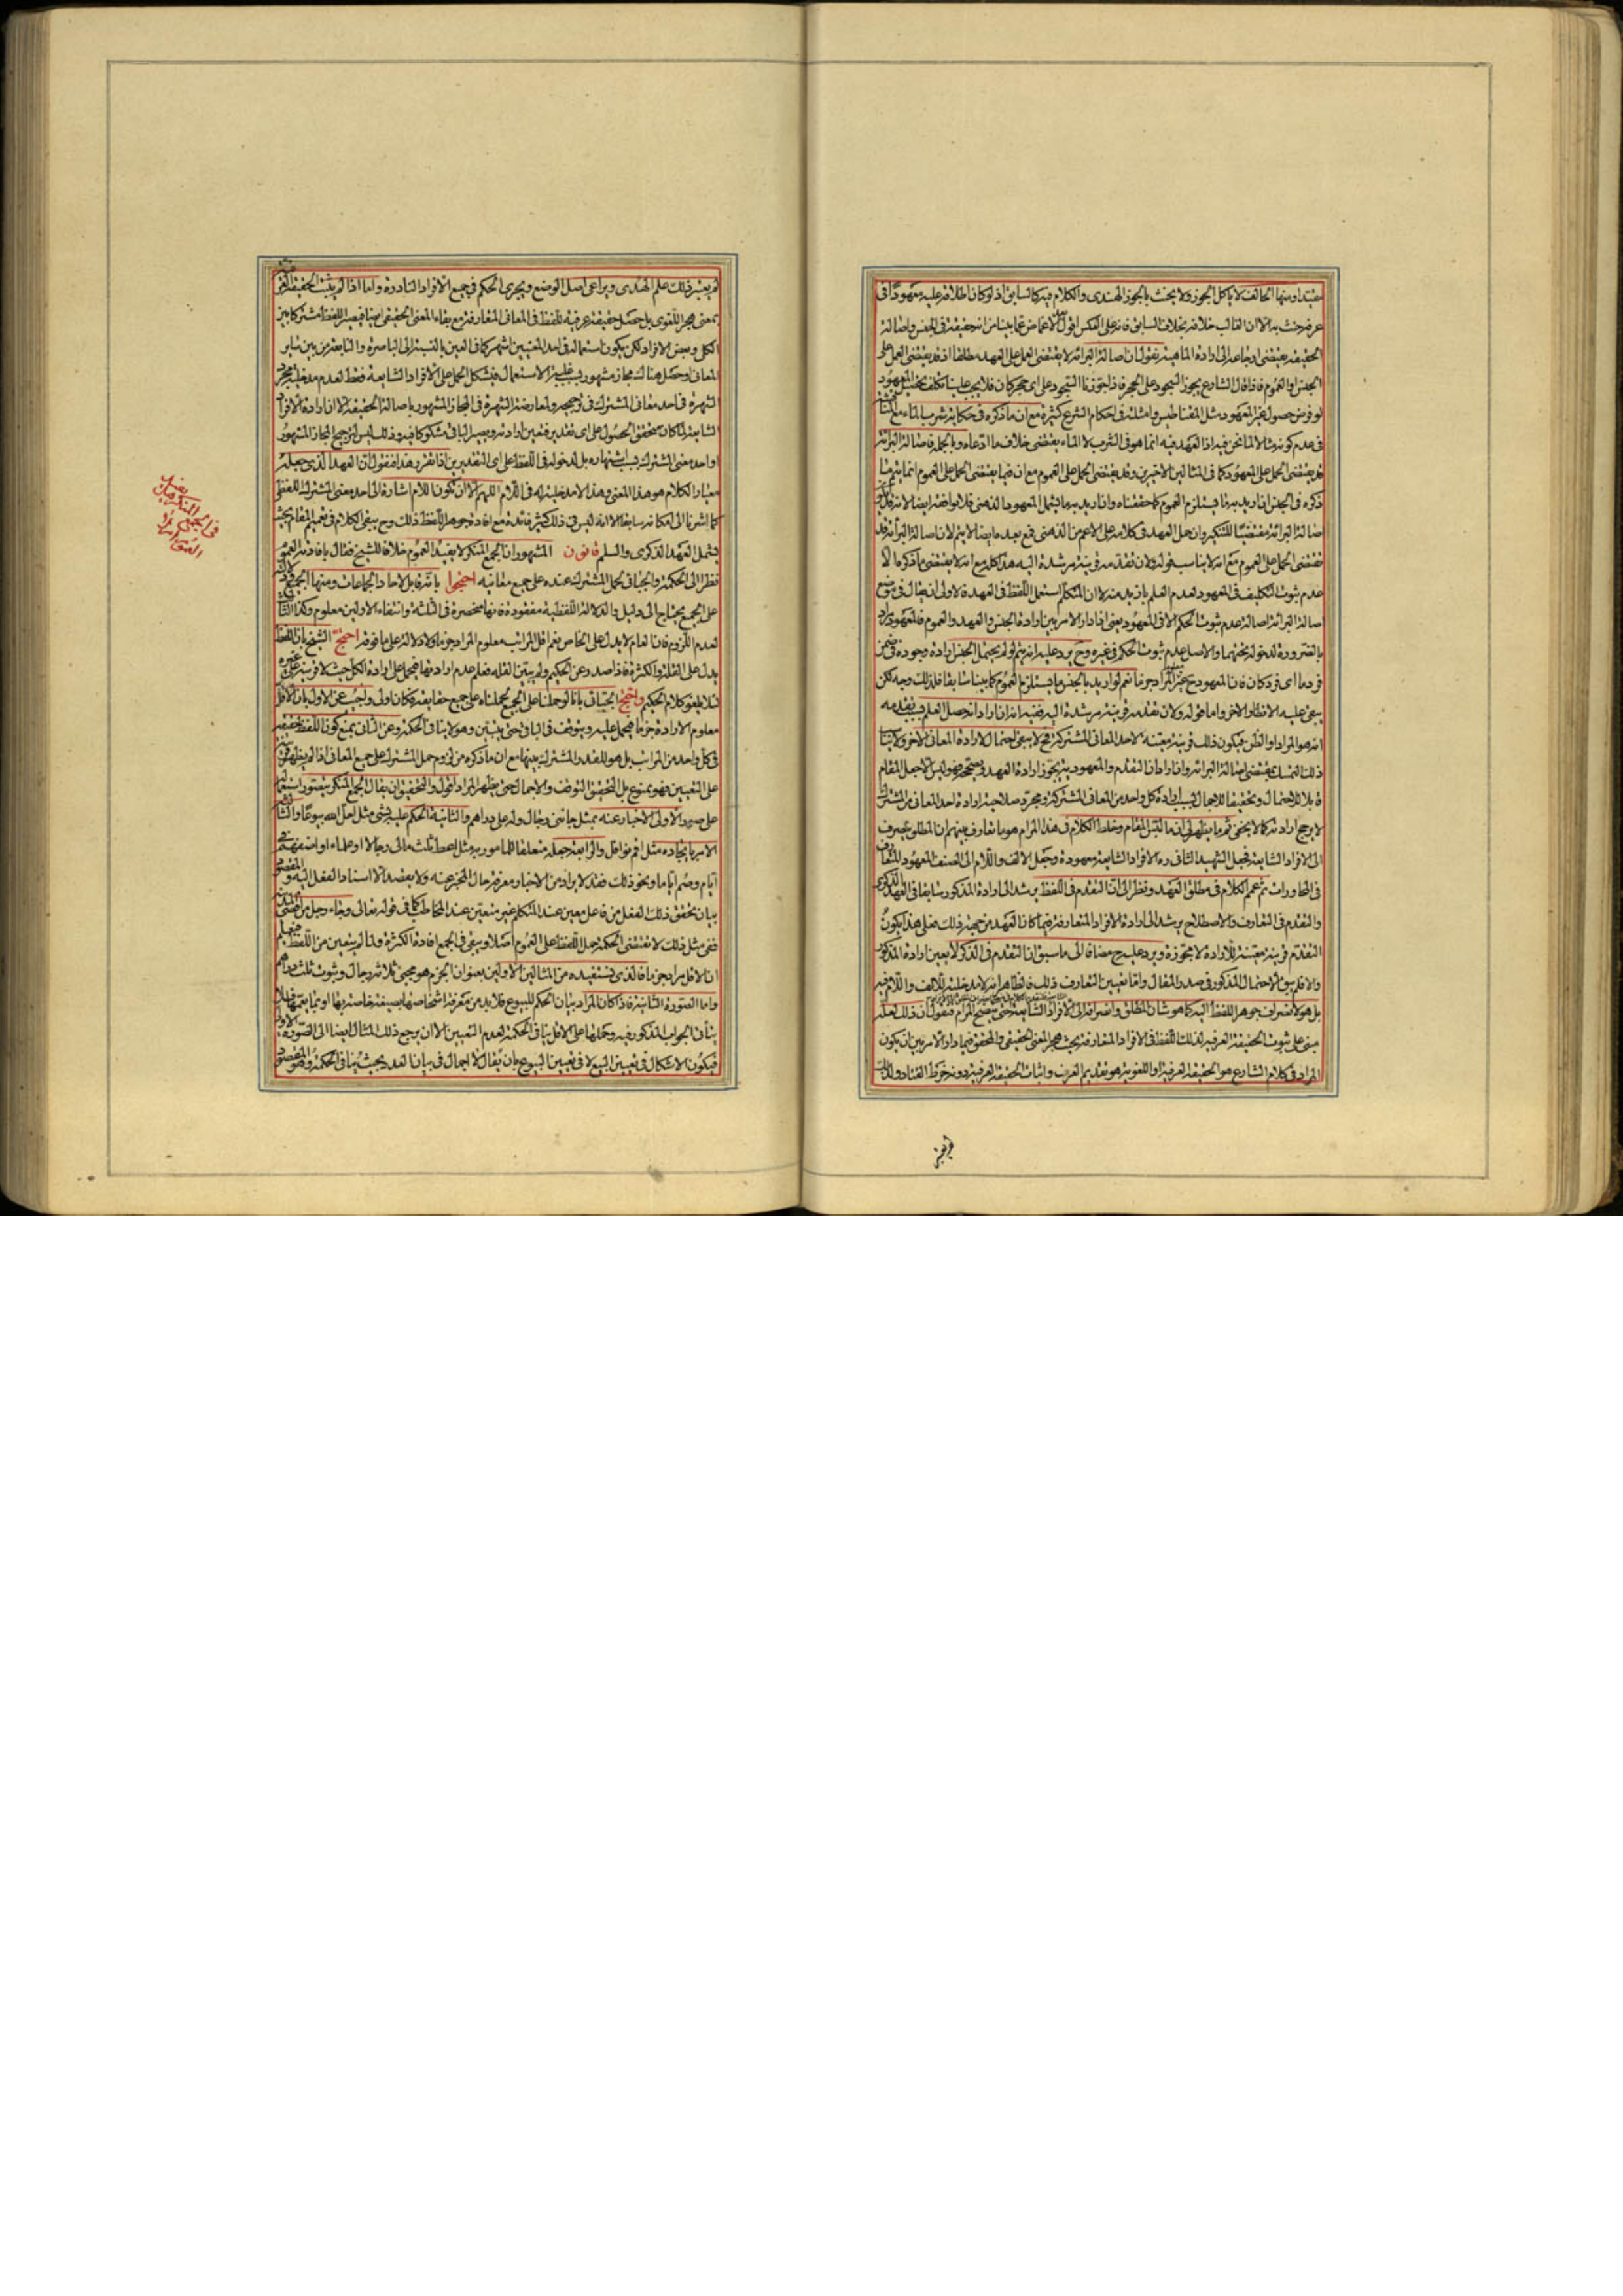 عرفه حنث به الا ان الغالب خلافه بخلاف السابق فانه على العكس اقول الاغماض عما بينا من انه حقيقة فى الجنس واصالة
الحقيقة يقتضى ارجاعه الى ارادة الماهية نقول ان اصالة البرائة لا يقتضى الحمل على العهد مطلقا اذ قد يقتضى الحمل على
الجنس او العموم فاذا قال الشارع يجوز السجود على الحجر فاذا جوزنا السجود على اى حجر كان فلا يجب علينا تكلف تحصيل المعهود
لو فرض حصول غير المعهود مثل المغناطيس وامثلته فى احكام الشرع كثيرة مع ان ما ذكره فى حكاية شرب الماء
فى عدم كونه مثالا لما نحن فيه اذ العهد فيه انما هو فى الشرب لا الماء يقتضى خلاف ما ادعاه وبالجملة فاصالة البرائة
قد يقتضى الحمل على المعهود كما فى المثالين الاخيرين وقد يقتضى الحمل على العموم مع ان فيما يقتضى الحمل على العموم انما يتم ما
ذكره فى الجنس ان اريد به ما يستلزم العموم كما حققناه وان اريد به ما يشمل المعهود الذهنى فلا يوافقه ايضا
اصالة البرائة مقتضيا للتنكير وان حمل العهد فى كلامه على الاعم من الذهنى فمع بعده ايضا لا يتم لان اصالة البرائة قد
تقتضى الحمل على العموم مع انه لا يناسب قوله ولان تقدمه قرينة مرشدة اليه هذا كله مع انه لا يقتضى ما ذكره الا
عدم ثبوت التكليف فى المعهود لعدم العلم بازيد منه لا ان المتكلم استعمل اللفظ فى العهد فالاولى ان يقال فى موضع
اصالة البرائة اصالة عدم ثبوت الحكم الا فى المعهود يعنى اذا دار الامر بين ارادة الجنس والعهد والعموم فالمعهود مراد
بالضرورة لدخوله تحتهما والاصل عدم ثبوت الحكم فى غيره وح يرد عليه انه يتم لو لم يحتمل الجنس ارادة وجوده فى ضمن
فرد ما اى فرد كان فان المعهود ح غير المراد جزما نعم لو اريد بالجنس ما يستلزم العموم كما بينا سابقا فلذلك وجه لكن
يبقى عليه الانظار الاخر واما قوله ولان تقدمه قرينة مرشدة اليه ففيه انه ان اراد انه حصل العلم بسبب تقدمه
انه هو المراد او الظن فيكون ذلك قرينة معينة لاحد المعانى المشتركة فح لا يبقى احتمال لارادة المعانى الاخر ولا يناسب
ذلك التمسك بمقتضى اصالة البرائة وان اراد ان التقدم والمعهودية يجوز ارادة العهد ويصححه فهو ليس الا جعل المقام
قابلا للاحتمال وتحقيقا للاجمال بسبب ارادة كل واحد من المعانى المشتركة ومجرد صلاحية ارادة احد المعانى من المشترك
لا يرجح ارادته كما لا يخفى ثم ما يظهر لى ان ما القبس المقام وخلط الكلام فى هذا المرام هو ما تعارف بينهم ان المطلق ينصرف
الى الافراد الشايعة فجعل الشهيد الثانى ره الافراد الشايعة معهودة وجعل الالف واللام الى الصنف المعهود المتعارف
فى المحاورات ثم عمم الكلام فى مطلق العهد ونظر الى ان التقدم فى اللفظ يرشد الى ارادة المذكور سابقا فى العهد الذكرى
والتقدم فى التعارف والاصطلاح يرشد الى ارادة الافراد المتعارفة فيما كان العهد من جهة ذلك فعلى هذا يكون
التقدم قرينة معينة للارادة لا مجوزة ويرد عليه ح مضافا الى ما سبق ان التقدم فى الذكر لا يعين ارادة المذكور
والا فلم يبق الاحتمال المذكور فى صدر المقال واما تعيين المتعارف ذلك فالظاهر انه لا مدخلية للالف واللام فيه
بل هو لانصراف جوهر اللفظ اليه كما هو شان المطلق وانصرافه الى الافراد الشايعة وتوضيح المرام فنقول ان ذلك لعله
مبنى على ثبوت الحقيقة العرفية لذلك اللفظ فى الافراد المتعارفة بحيث هجر المعنى الحقيقى والمحقق فيما دار الامر بين ان يكون
المراد فى كلام الشارع هو الحقيقة العرفية او اللغوية هو تقديم العرف واثبات الحقيقة العرفية دونه خرط القتاد ولذلك
لم يعتبر
لم يعتبر ذلك علم الهدى ويراعى اصل الوضع ويجرى الحكم فى جميع الافراد النادرة واما اذا لم يثبت الحقيقة العرفية
بمعنى هجر اللغوى بل حصل حقيقة عرفية للفظ فى المعانى المتعارفة مع بقاء المعنى الحقيقى ايضا فيصير اللفظ مشتركا بين
الكل وبعض الافراد لكن يكون استعماله فى احد المعنيين اشهر كما فى العين بالنسبة الى الباصرة والنابعة من بين ساير
المعانى او حصل هناك مجاز مشهور بسبب غلبة الاستعمال فيشكل الحمل على الافراد الشايعة فقط لعدم مدخلية مجرد
الشهرة فى احد معانى المشترك فى ترجيحه ولمعارضة الشهرة فى المجاز المشهور باصالة الحقيقة الا ان ارادة الافراد
الشايعة لما كان متحقق الحصول على اى تقدير فتعين ارادته ويصير الباقى مشكوكا فيه وذلك ليس لترجيح المجاز المشهور
او احد معنى المشترك بسبب اشتهاره بل لدخوله فى اللفظ على اى التقديرين اذا تقرر هذا فنقول ان العهد الذى جعله
معيار الكلام هو هذا المعنى وهذا لا مدخلية له فى اللام اللهم الا ان يكون اللام اشارة الى احد معنى المشترك اللفظى
كما اشرنا الى امكانه سابقا الا انه ليس فى ذلك كثير فائدة مع افادة جوهر اللفظ ذلك وح يبقى الكلام فى تعميم المقام بحيث
يشمل العهد الذكرى والسلم قانون المشهور ان الجمع المنكر لا يفيد العموم خلافا للشيخ فقال بافادته العموم
نظرا الى الحكمة والجبائى لحمل المشترك عنده على جميع معانيه احتجوا بانه قابل لاحاد الجماعات ومنها الجميع
على الجمع يحتاج الى دليل والدلالة اللفظية مفقودة فانها منحصرة فى الثلثة وانتفاء الاولين معلوم وكذا الثالث
لعدم اللزوم فان العام لا يدل على الخاص نعم اقل المراتب معلوم المراد جزما ولا دلالة على ما فوقه احتج الشيخ بان اللفظ
يدل على القلة والكثرة فاذا صدر عن الحكيم ولم يبين القلة فعلم عدم ارادتها فيحمل على ارادة الكل حيث لا قرينة على غيره
لئلا يلغو كلام الحكيم واحتج الجبائى بانا لو حملناه على الجمع لحملناه على جميع حقايقه فكان اولى واجيب عن الاول بان الاقل
معلوم الارادة جزما فيحمل عليه ويتوقف فى الباقى حتى يتبين وهو لا ينافى الحكمة وعن الثانى بمنع كون اللفظ حقيقة
فى كل واحد من المراتب بل هو للقدر المشترك بينها مع ان ما ذكره من لزوم حمل المشترك على جميع المعانى اذا لم يظهر قرينة
على التعيين فهو ممنوع بل التحقيق التوقف والاجمال حتى يظهر المراد اقول والتحقيق ان يقال الجمع المنكر يتصور استعماله
على صور الاولى الاخبار عنه بمثل جائنى رجال وله على دراهم والثانية الحكم عليه بشىء مثل احل الله بيوعا والثالثة
الامر بايجاده مثل اقم نوافل والرابعة جعله متعلقا للمامور به مثل اعط ثلث مالى رجالا او علماء او اضفهم
ايام وصم اياما ونحو ذلك فقد لا يراد من الاخبار معرفة حال المخبر عنه ولا يقصد الا اسناد الفعل اليه والمقصود
بيان تحقق ذلك الفعل من فاعل معين عند المتكلم غير متعين عند المخاطب كما فى قوله تعالى وجاء رجل من اقصى المدينة
ففى مثل ذلك لا تقتضى الحكمة حمل اللفظ على العموم اصلا ويبقى فى الجمع افادة الكثرة ولما لم يتعين من اللفظ فيعلم
ان الاقل مراد جزما فالذى نستفيده من المثالين الاولين بعنوان الجزم هو مجىء ثلاثة رجال وثبوت ثلث دراهم
واما الصورة الثانية فاذا كان المراد بيان الحكم للبيوع فلا بد من معرفة اشخاصها بصيغة خاصة بها او بما يعمها فلا
يتأتى الجواب المذكور فيه وحملها على الاقل ينافى الحكمة لعدم التعيين الا ان يرجع ذلك المثال ايضا الى الصورة الاولى
فيكون الاشكال فى تعيين المبيع لا فى تعيين البيوع بان يقال لا اجمال فى بيان العدد بحيث ينافى الحكمة والمقصود